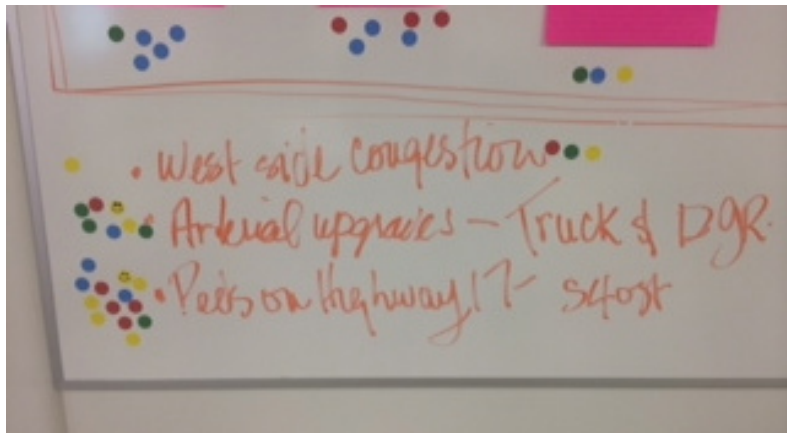 • West side congestion
• Arterial upgrades - Truck & DGR.
• Peds on Highway 17 -